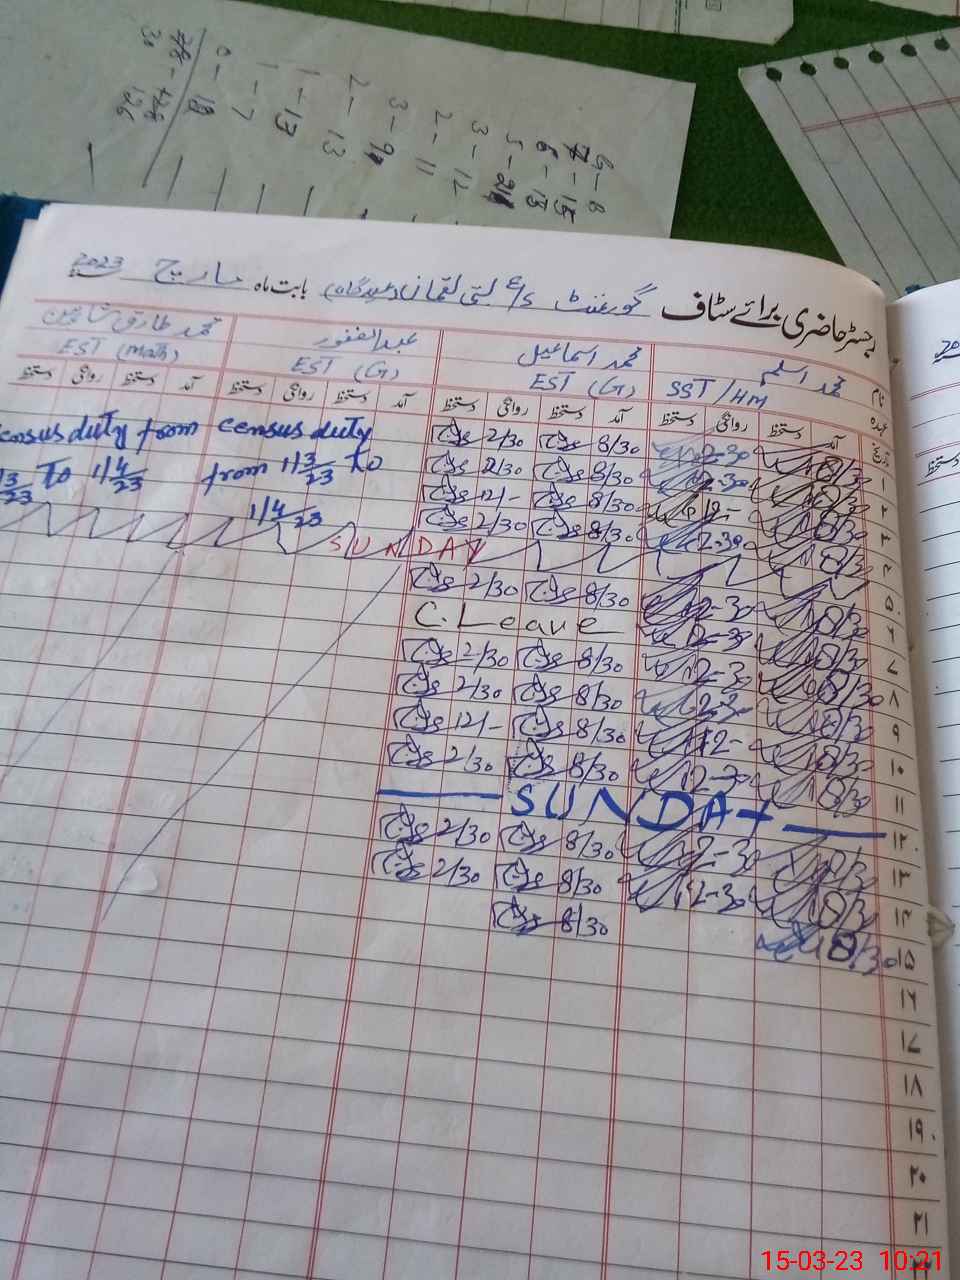 6 - 8
7 - 15
6 - 13
5 - 21
3 - 12
2 - 11
3 - 9
2 - 13
1 - 13
1 - 7
0 - 12
30 126
رجسٹر حاضری برائے سٹاف گورنمنٹ بستی لقمان (عیدگاہ) بابت ماہ مارچ 2023
نام محمد اسلم محمد اسماعیل عبدالغفور محمد طارق شاہین
عہدہ SST/HM EST (G) EST (G) EST (Math)
تاریخ آمد دستخط روانگی دستخط آمد دستخط روانگی دستخط آمد دستخط روانگی دستخط آمد دستخط روانگی دستخط
۱ 8/30 2-30 8/30 2/30 census duty census duty from
۲ 8/30 2-30 8/30 2/30 from 1/3/23 To 1/3/23 To 1/4/23
۳ 8/30 12- 8/30 12/- 1/4/23
۴ 8/30 2-30 8/30 2/30
۵ SUNDAY
۶ 8/30 2-30 8/30 2/30
۷ 8/30 2-30 C. Leave
۸ 8/30 2-30 8/30 2/30
۹ 8/30 2-30 8/30 2/30
۱۰ 8/30 12- 8/30 12/-
۱۱ 8/30 2-30 8/30 2/30
۱۲ SUNDAY
۱۳ 8/30 2-30 8/30 2/30
۱۴ 8/30 2-30 8/30 2/30
۱۵ 8/30 8/30
۱۶
۱۷
۱۸
۱۹
۲۰
۲۱
دستخط
15-03-23 10:21